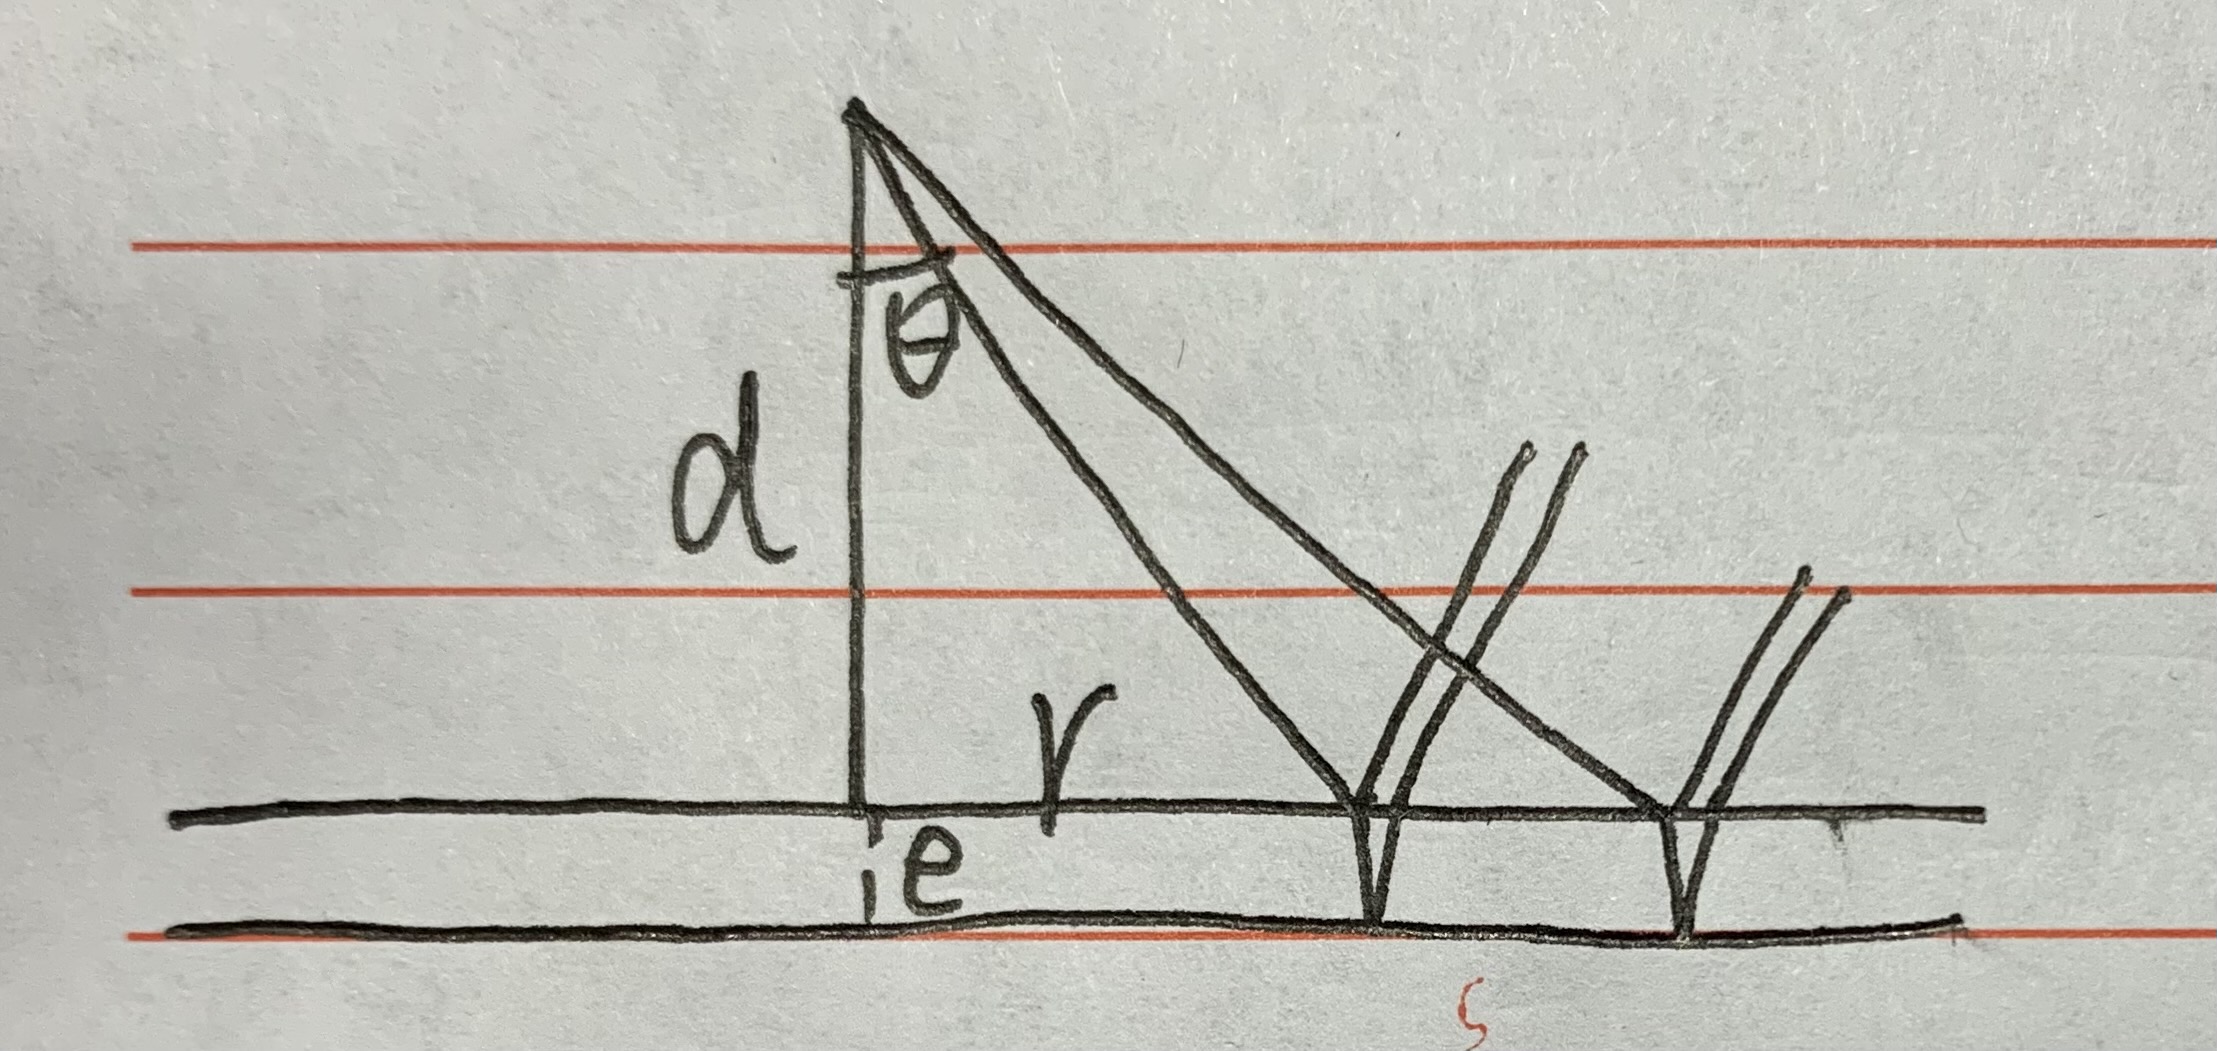 θ
d
r
e
s